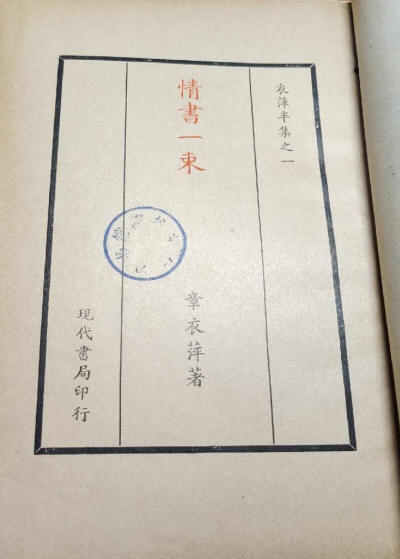 衣萍半集之一
情書一束
章衣萍著
現代書局印行